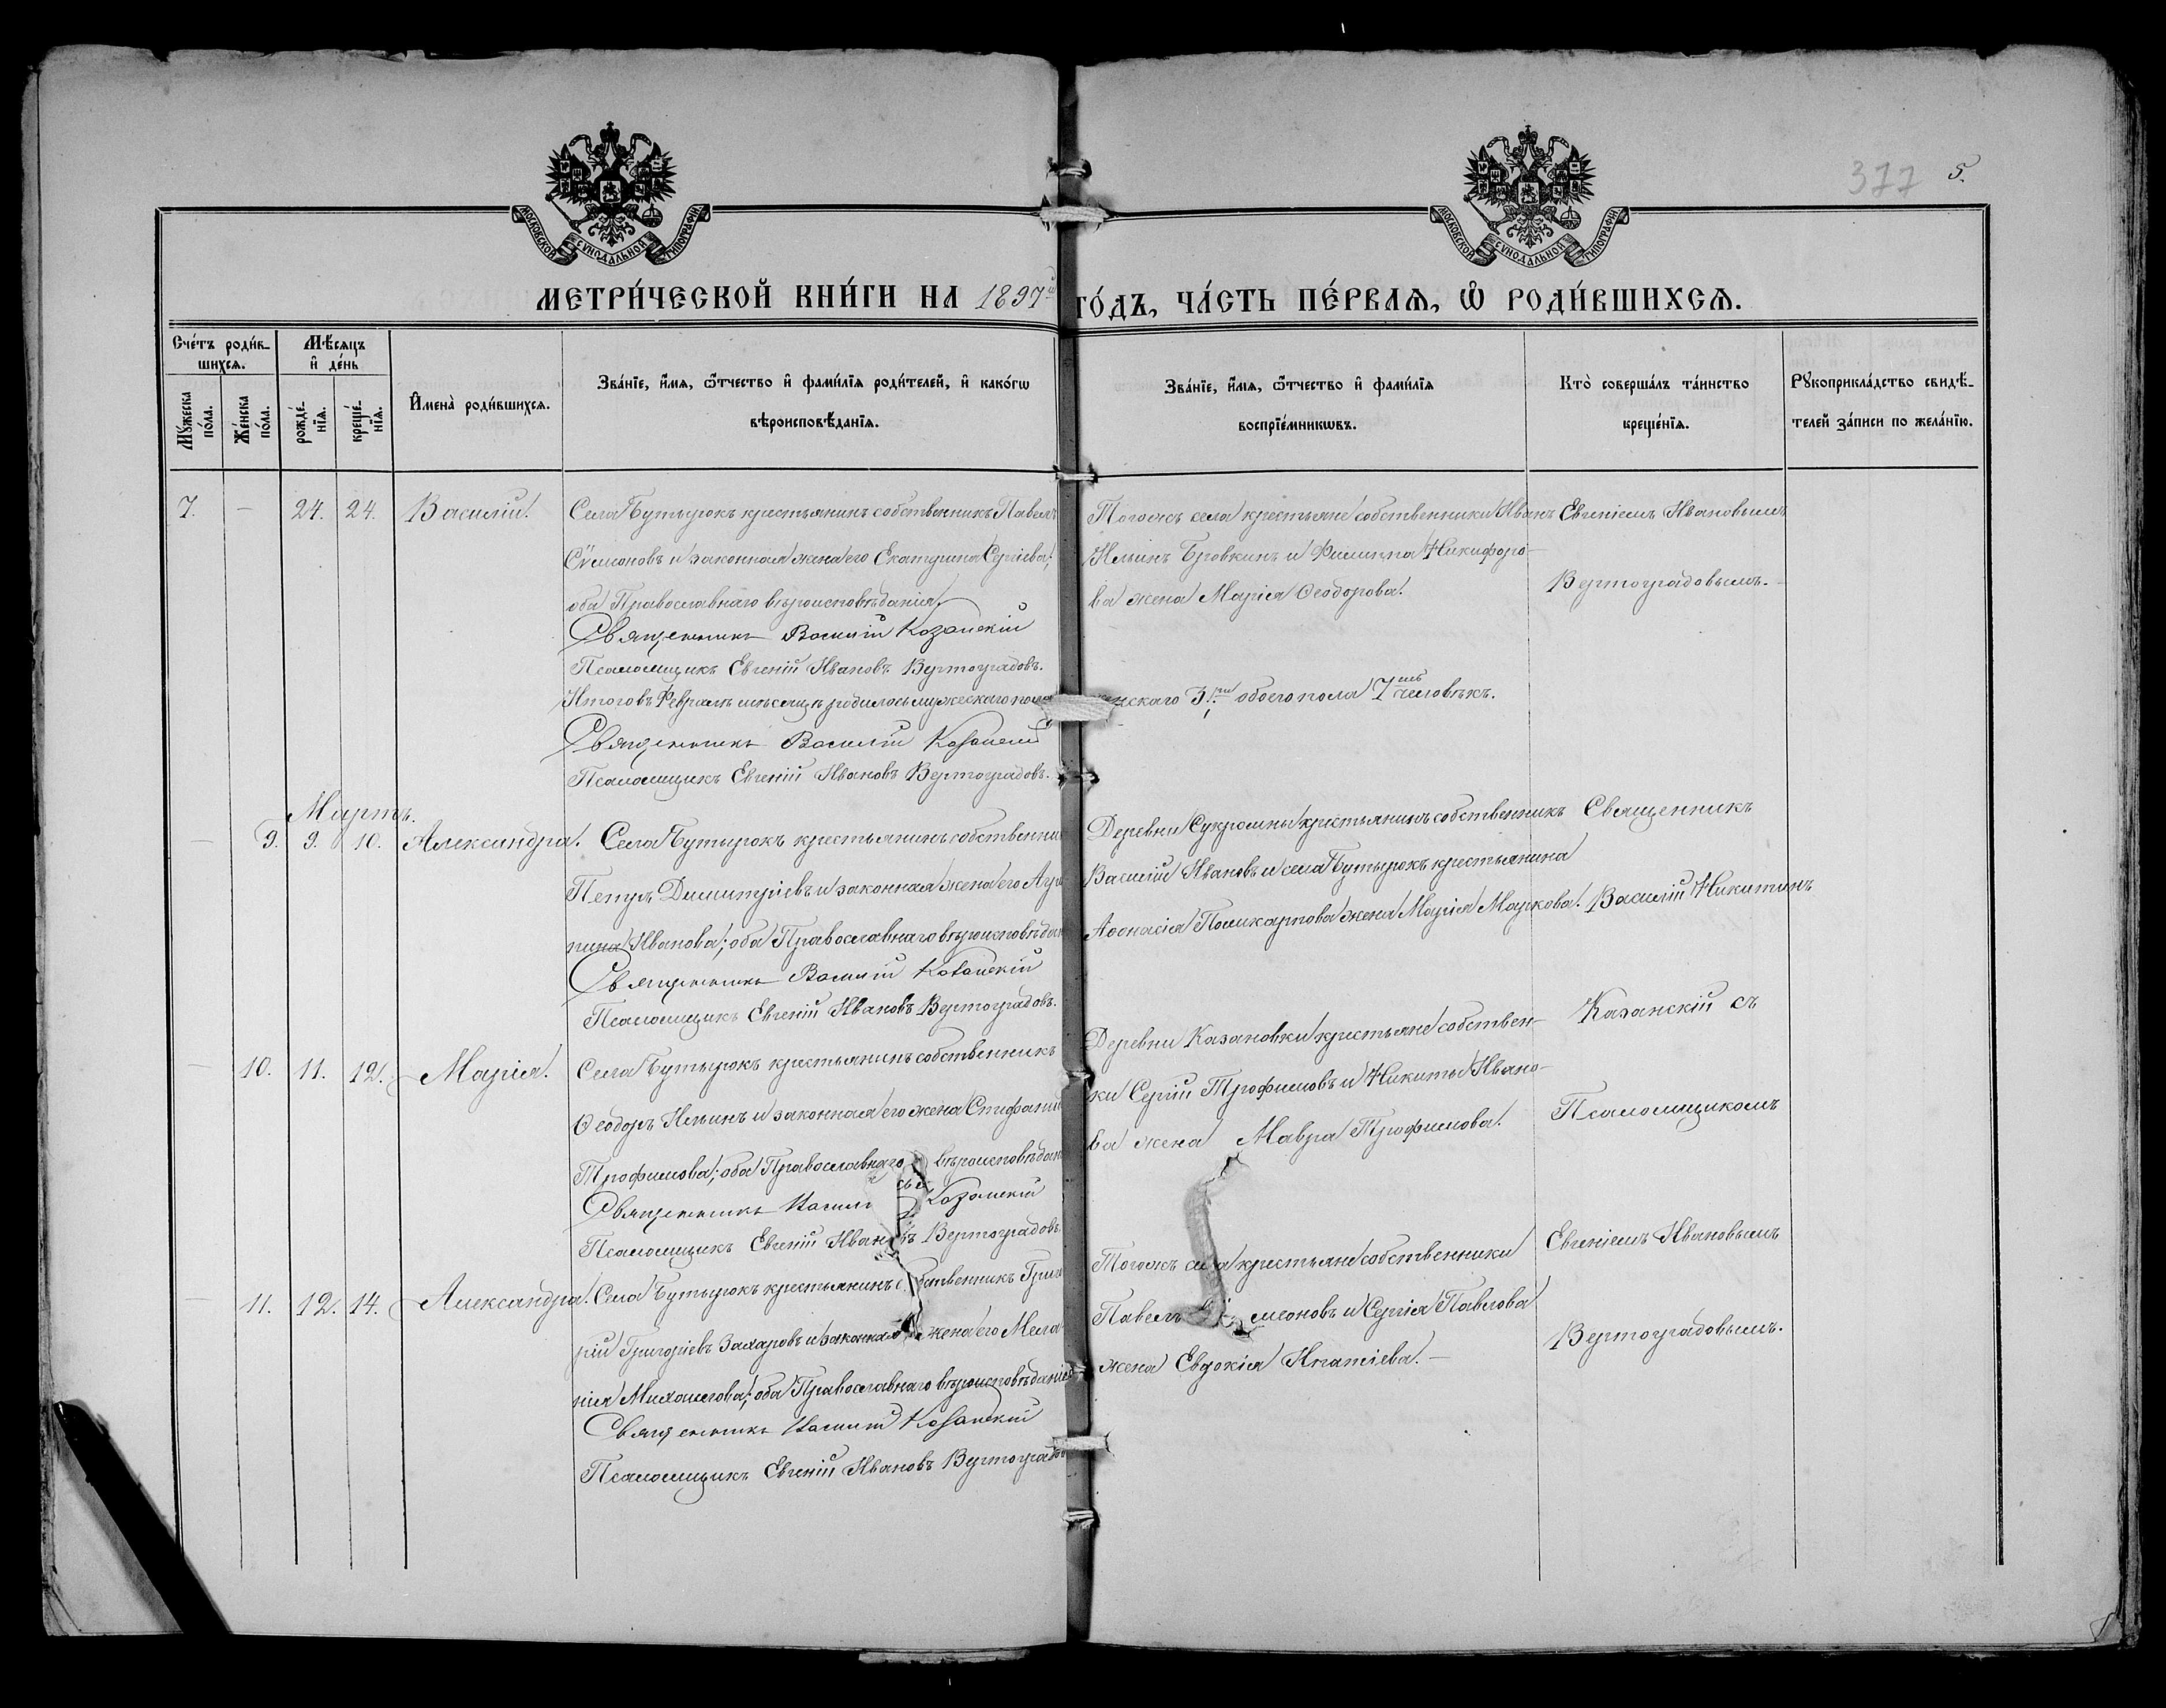 377 5.
МОСКОВСКОЙ СѴНОДАЛЬНОЙ ТИПОГРАФІИ
МОСКОВСКОЙ СѴНОДАЛЬНОЙ ТИПОГРАФІИ
МЕТРИ́ЧЕСКОЙ КНИ́ГИ НА 1897й ГО́ДЪ, ЧА́СТЬ ПЕ́РВАѦ, Ѡ҆ РОДИ́ВШИХСѦ.
Сче́тъ роди́в-
шихсѧ.
Мѣ́сѧцъ
и҆ де́нь
Мꙋ́жеска по́ла.
Же́нска по́ла.
рожде́-
нїѧ.
креще́-
нїѧ.
И҆мена̀ роди́вшихсѧ.
Зва́нїе, и҆́мѧ, ѻ҆́тчество и҆ фами́лїѧ роди́телей, и҆ како́гѡ
вѣроисповѣ́данїѧ.
Зва́нїе, и҆́мѧ, ѻ҆́тчество и҆ фами́лїѧ
воспрїе́мникѡвъ.
Кто̀ соверша́лъ та́инство
креще́нїѧ.
Рꙋкоприкла́дство свидѣ́-
телей за́писи по жела́нїю.
7. — 24. 24. Василій.
Села Бутырокъ крестьянинъ собственникъ Павелъ
Сѵмеоновъ и законная жена его Екатерина Сергіева;
оба Православнаго вѣроисповѣданія.
Священникъ Василій Казанскій
Псаломщикъ Евгеній Ивановъ Вертоградовъ.
Тогожъ села крестьяне собственники Иванъ
Ильинъ Бровкинъ и Филиппа Никифоро-
ва жена Марія Ѳеодорова.
Евгеніемъ Ивановымъ
Вертоградовымъ.
Итого въ Февралѣ мѣсяцѣ родилось мужескаго пола женскаго 3. обоего пола 7мь человѣкъ.
Священникъ Василій Казанскій
Псаломщикъ Евгеній Ивановъ Вертоградовъ.
Мартъ.
— 9. 9. 10. Александра.
Села Бутырокъ крестьянинъ собственни
Петръ Димитріевъ и законная жена его Агри
пина Иванова; оба Православнаго вѣроисповѣдан
Священникъ Василій Казанскій
Псаломщикъ Евгеній Ивановъ Вертоградовъ.
Деревни Сукромны крестьянинъ собственникъ
Василій Ивановъ и села Бутырокъ крестьянина
Аѳонасія Поликарпова жена Марія Маркова.
Священникъ
Василій Никитинъ
Казанскій съ
Псаломщикомъ
Евгеніемъ Ивановымъ
Вертоградовымъ.
— 10. 11. 12. Марія.
Села Бутырокъ крестьянинъ собственникъ
Ѳеодоръ Ильинъ и законная его жена Стефани
Трофимова; оба Православнаго вѣроисповѣдан
Священникъ Васил Казанскій
Псаломщикъ Евгеній Ивановъ Вертоградовъ.
Деревни Казановки крестьяне собствен-
ки Сергій Трофимовъ и Никиты Ивано-
ва жена Мавра Трофимова.
— 11. 12. 14. Александра.
Села Бутырокъ крестьянинъ собственникъ Григо
рій Григоріевъ Захаровъ и законная жена его Мела
нія Михаилова; оба Православнаго вѣроисповѣданія
Священникъ Василій Казанскій
Псаломщикъ Евгеній Ивановъ Вертоградов
Тогожъ села крестьяне собственники
Павелъ Сѵмеоновъ и Сергія Павлова
жена Евдокія Игнатіева. —